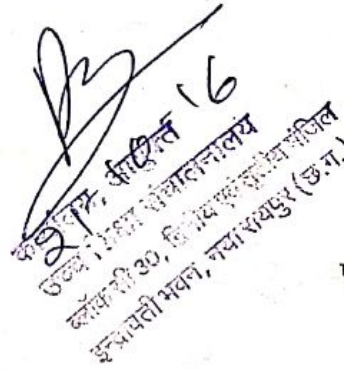 कार्यालय, आयुक्त
उच्च शिक्षा संचालनालय
ब्लॉक सी 30, द्वितीय एवं तृतीय मंजिल
इन्द्रावती भवन, नया रायपुर (छ.ग.)